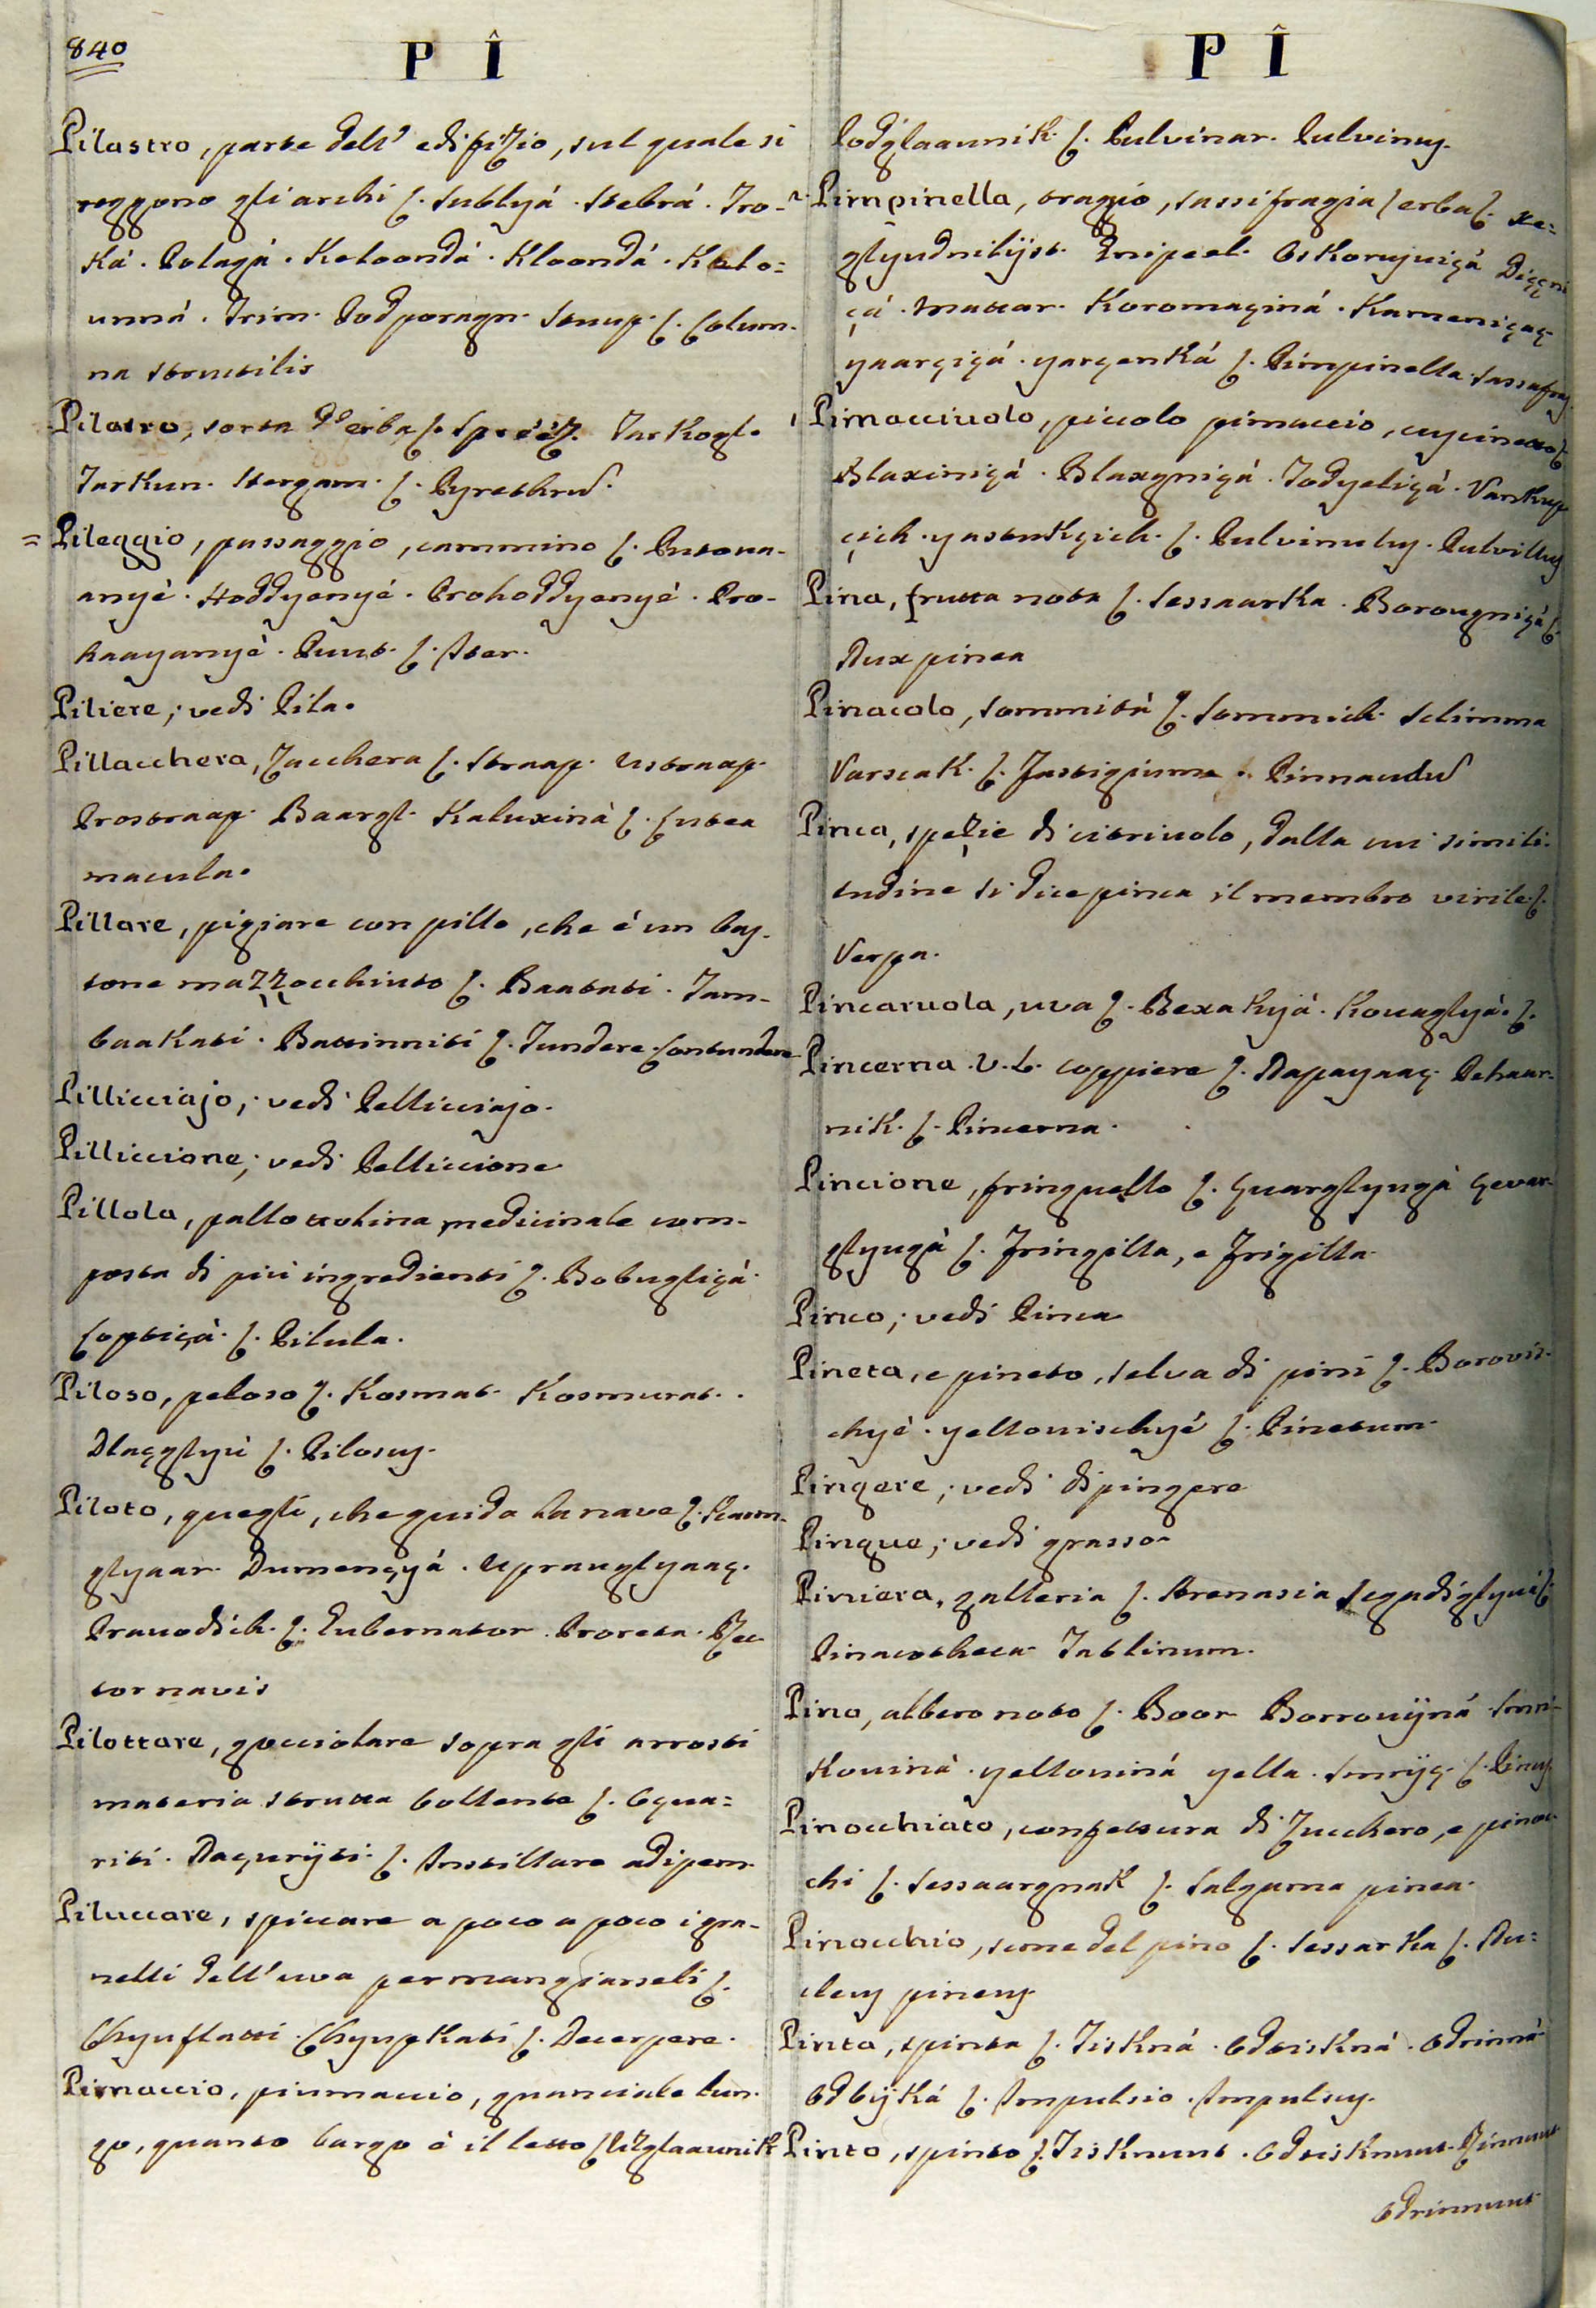 840
P Î
Pilastro, parte dell' edifizio, sul quale si
reggono gli archi ſ. Sublyá. Stebrá. Tro-
ká. Polagá. Koloondá. Kloondá. Kolo=
unná. Trim. Podporagn. Stup. ſ. Colum-
na structilis
Pilatro, sorta d'erba ſ. Tarkogl.
Tarkun. Stergam. ſ. Pyrethrum.
= Pileggio, passaggio, cammino ſ. Putova-
anyé. Hoddyenyé. Prohoddyenyé. Pro-
haayanyè. Puut. ſ. Iter.
Piliere; vedi Pila.
Pillacchera, Zacchera ſ. Straap. Ustraap.
Prostraap. Baargl. Kaluxinà ſ. Lutea
macula.
Pillare, pigiare con pillo, che é un bas-
tone mazzocchiuto ſ. Baatati. Tam-
baakati. Battinniti ſ. Tundere. Contundere
Pillicciajo; vedi Pellicciajo.
Pilliccione; vedi Pelliccione
Pillola, pallottolina medicinale com-
posta di più ingredienti ſ. Bobugliçá.
Loptiçà. ſ. Pilula.
Piloso, peloso ſ. Kosmat. Kosmurat.
Dlaçglyù ſ. Pilosus.
Piloto, quegli, che guida la nave ſ. Karm-
glyaar. Dumençyá. Upravglyaaç.
Pravodich. ſ. Gubernator. Proreta. Rec
tor navis
Pilottare, gocciolare sopra gli arrosti
materia strutta bollente ſ. Oçua=
riti. Naçvrÿti. ſ. Instillare adipem.
Piluccare, spiccare a poco a poco i gra-
nelli dell'uva per mangiarseli ſ.
Chyuflatti. Chyupkati ſ. Decerpere.
Pimaccio, piumaccio, guanciale lun-
go, quanto largo è il letto ſ. Uzglaavnik
P Î
Podglaavnik. ſ. Pulvinar. Pulvinus.
Pimpinella, tragio, sassifragia ſerbaſ. xe=
glyudnilÿst. Dnipeel. Oskorujviçà
çá. Mattar. Koromaçiná. Kameniçaç
yaarçiçá. yarçenká ſ. Pimpinella. Sassafrag
Pimacciuolo, piccolo pimaccio, cuscinetto ſ.
Blaxiniçá. Blaxgniçá. Todyeliçá. Vankus
çich. yastukçich. ſ. Pulvinulus. Pulvillus
Pina, frutta nota ſ. Sessaarka. Borougniçà ſ.
Nux pinea
Pinacolo, sommità ſ. Sommich. Sclimma
Varscak. ſ. Fastigium. Pinnaculum
Pinca, spezie di citriuolo, dalla cui simili-
tudine si dice pinca il membro virile ſ.
Verpa.
Pincaruola, uva ſ. Bexakyá. Kouaglyá. ſ.
Pincerna. V.L. coppiere ſ. Napayaaç. Pehaar-
nik. ſ. Pincerna.
Pincione, fringuello ſ. Çvarglyugà Çevar-
glyugà ſ. Fringilla, e Frigilla.
Pinco; vedi Pinca
Pineta, e pineto, selva di pini ſ. Borovis-
chyè. yellovischyé ſ. Pinetum.
Pingere; vedi dipingere
Pingue; vedi grasso
Piniera, galleria ſ.
Pinacotheca Tablinum.
Pino, albero noto ſ. Boor Borrovÿná Smri-
kovinà. yellovinà yella. Smrÿç. ſ. Pinus.
Pinocchiato, confettura di Zucchero, e pinoc-
chi ſ. Sessaargnak ſ. Salgama pinea.
Pinocchio, seme del pino ſ. Sessarka ſ. Nu=
cleus pineus.
Pinta, spinta ſ. Tisknà. Odtisknà. Odrinnà
Odbÿká ſ. Impulsio. Impulsus.
Pinto, spinto ſ. Tisknuut. Odtisknuut. Rinnuut
Odrinnuut